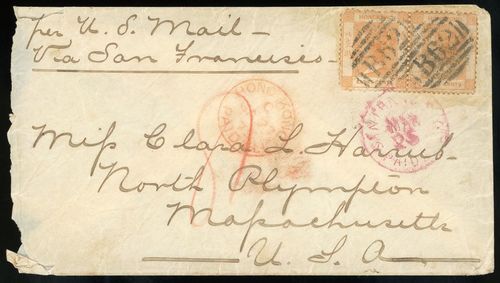 per U. S. Mail—
Via San Francisco—
HONG KONG
B62
B62
CENTS
HONG KONG
PAID
SAN FRANCISCO
MAR
PAID
Miss Clara L. Harrub—
North Plympton
Massachusetts
U. S. A